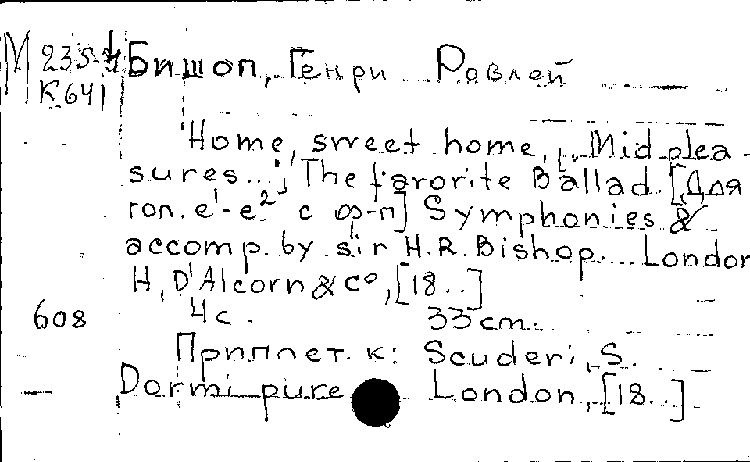 М 235-4 Бишоп, Генри Равлей
К 641
"Home, sweet home, "Mid plea-
sures...", The favorite Ballad. [Для
гол. e¹-e² с ф-п] Symphonies &
accomp. by sir H.R. Bishop. London
H, D'Alcorn & C°, [18..]
608 4 с. 33 cm.
Приплет. к: Scuderi, S.
Dormi pure London, [18..]